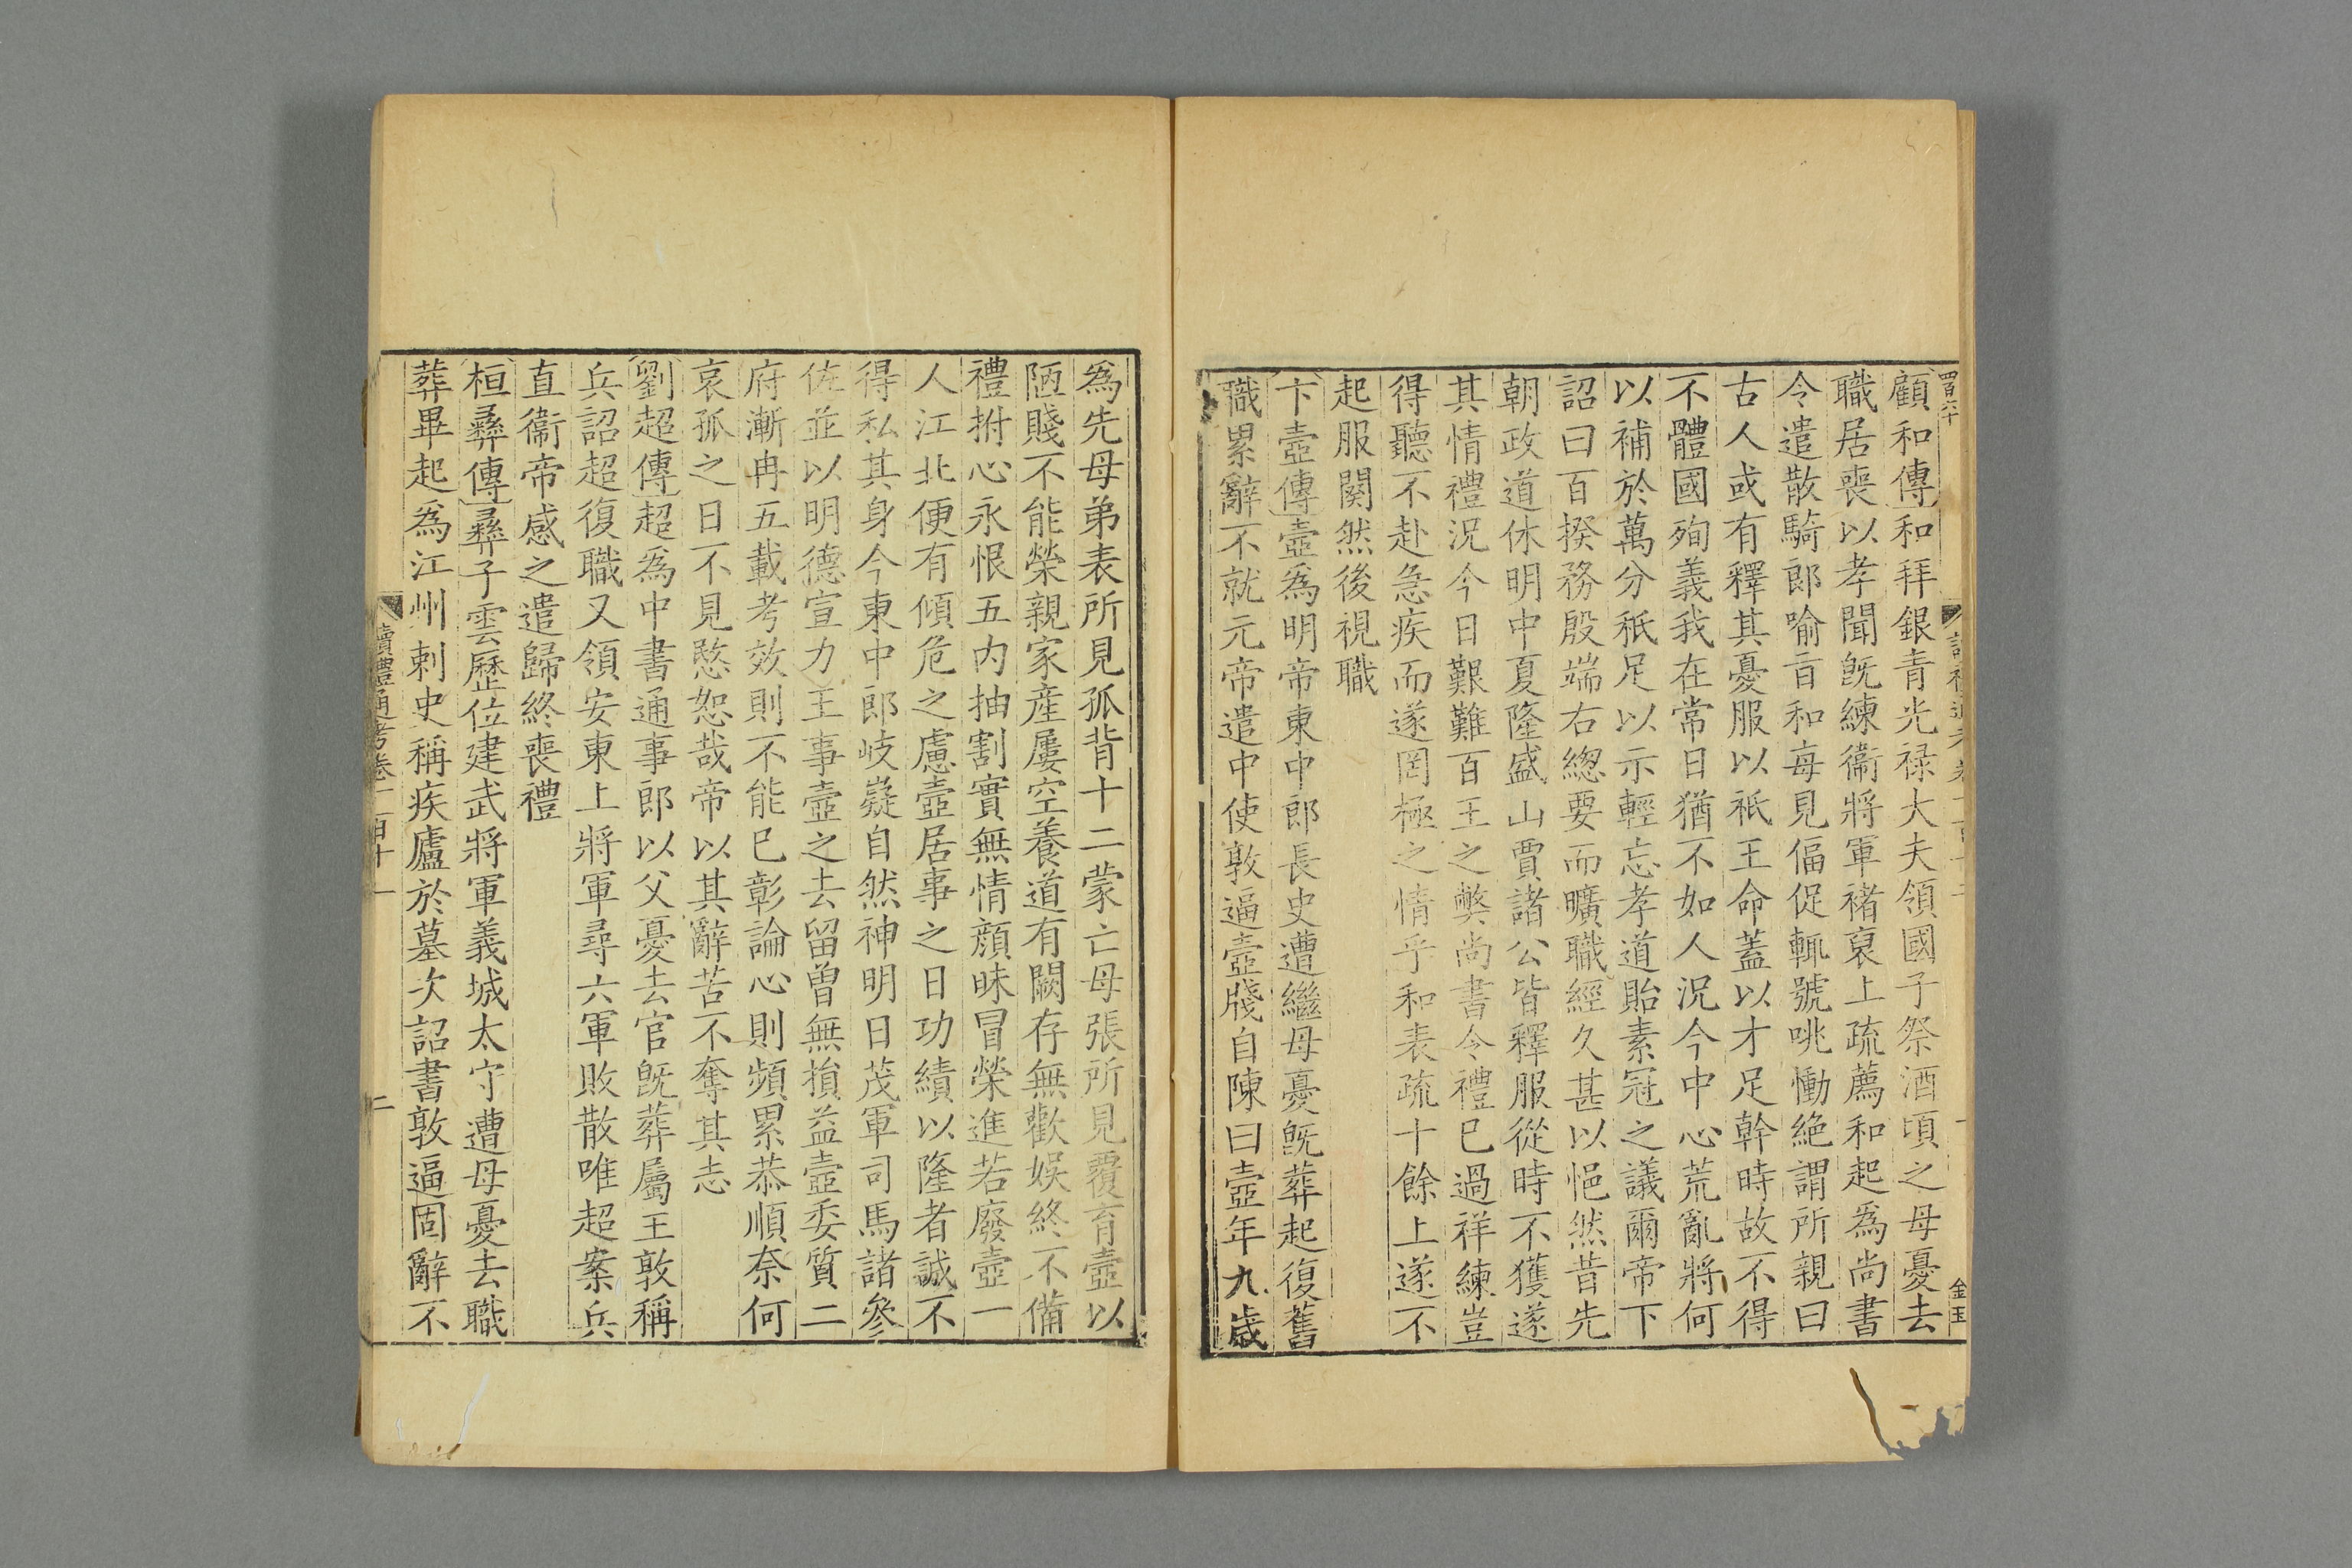 四百六十
金玉
顧和傳和拜銀青光禄大夫領國子祭酒頃之母憂去
職居喪以孝聞旣練衞將軍褚裒上疏薦和起爲尚書
令遣散騎郎喻㫖和每見偪促輒號咷慟絶謂所親曰
古人或有釋其憂服以祇王命蓋以才足幹時故不得
不體國殉義我在常日猶不如人況今中心荒亂將何
以補於萬分祇足以示輕忘孝道貽素冠之議爾帝下
詔曰百揆務殷端右緫要而曠職經久甚以悒然昔先
朝政道休明中夏隆盛山賈諸公皆釋服從時不獲遂
其情禮況今日艱難百王之弊尚書令禮已過祥練豈
得聽不赴急疾而遂罔極之情乎和表疏十餘上遂不
起服闋然後視職
卞壼傳壼爲明帝東中郎長史遭繼母憂旣葬起復舊
職累辭不就元帝遣中使敦逼壼牋自陳曰壼年九歳
爲先母弟表所見孤背十二蒙亡母張所見覆育壼以
陋賤不能榮親家産屢空養道有闕存無歡娛終不備
禮拊心永恨五内抽割實無情顔昧冒榮進若廢壼一
人江北便有傾危之慮壼居事之日功績以隆者誠不
得私其身今東中郎岐嶷自然神明日茂軍司馬諸參
佐並以明德宣力王事壼之去留曾無損益壼委質二
府漸冉五載考效則不能已彰論心則頻累恭順奈何
哀孤之日不見愍恕哉帝以其辭苦不奪其志
劉超傳超爲中書通事郎以父憂去官旣葬屬王敦稱
兵詔超復職又領安東上將軍尋六軍敗散唯超案兵
直衞帝感之遣歸終喪禮
桓彝傳彝子雲歷位建武將軍義城太守遭母憂去職
葬畢起爲江州刺史稱疾廬於墓次詔書敦逼固辭不
讀禮通考卷一百十一
二